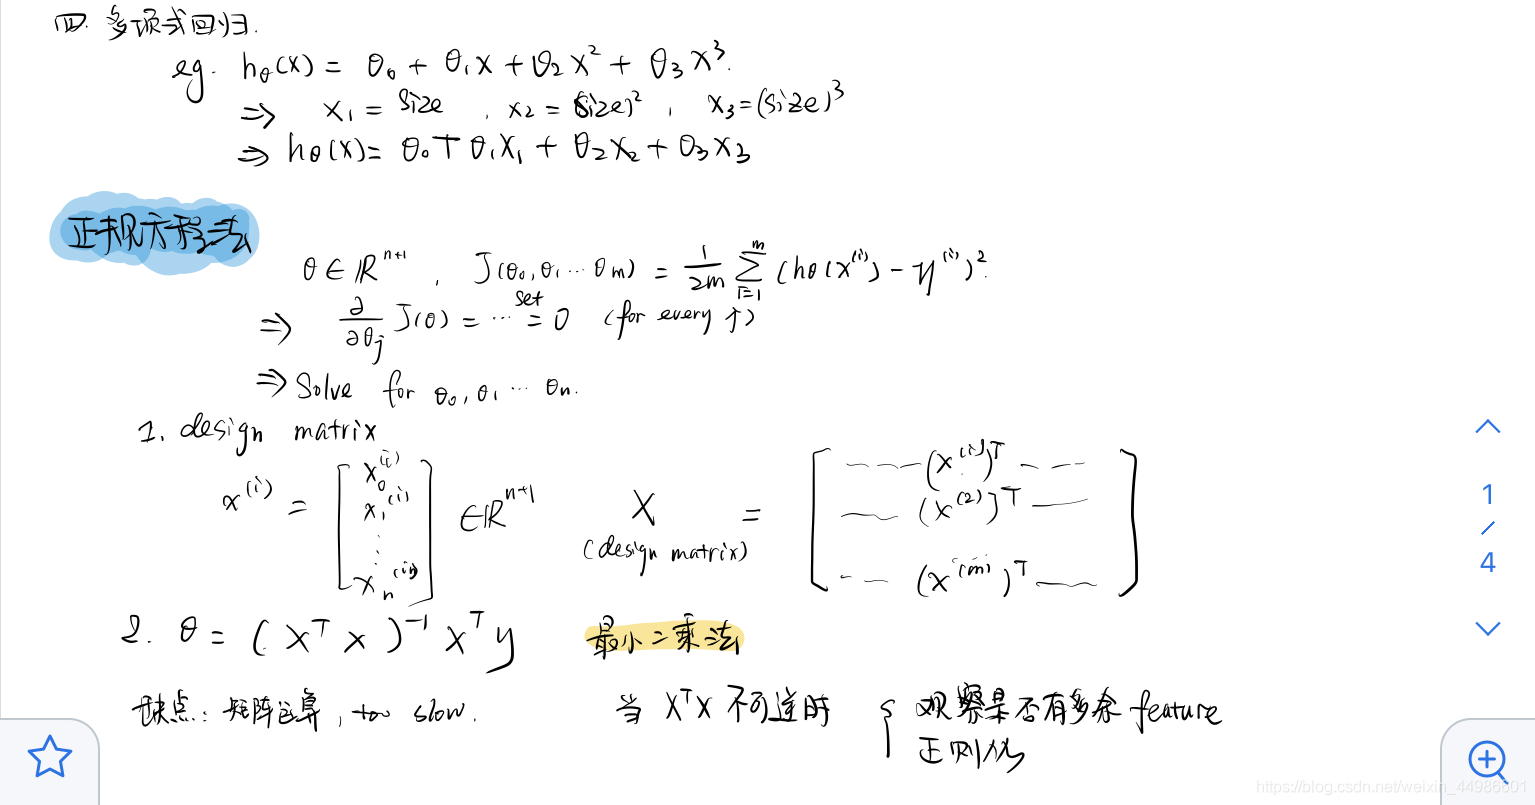 四. 多项式回归.
eg. hθ(x) = θ₀ + θ₁x + θ₂x² + θ₃x³.
⇒ x₁ = size , x₂ = (size)² , x₃ = (size)³
⇒ hθ(x) = θ₀ + θ₁x₁ + θ₂x₂ + θ₃x₃
正规方程法
θ ∈ ℝⁿ⁺¹ , J(θ₀, θ₁ ⋯ θm) = 1/2m ∑ᵢ₌₁ᵐ (hθ(x⁽ⁱ⁾) - y⁽ⁱ⁾)².
⇒ ∂/∂θj J(θ) = ⋯ set = 0 (for every j)
⇒ Solve for θ₀, θ₁ ⋯ θn.
1. design matrix
x⁽ⁱ⁾ = [x₀⁽ⁱ⁾ x₁⁽ⁱ⁾ ⋮ xn⁽ⁱⁿ⁾] ∈ ℝⁿ⁺¹ X (design matrix) = [---(x⁽¹⁾)ᵀ--- —(x⁽²⁾)ᵀ— --(x⁽ᵐ⁾)ᵀ—]
2. θ = (XᵀX)⁻¹Xᵀy 最小二乘法
缺点: 矩阵运算, too slow. 当 XᵀX 不可逆时 { 观察是否有多余 feature
正则化
1
/
4
https://blog.csdn.net/weixin_44986601